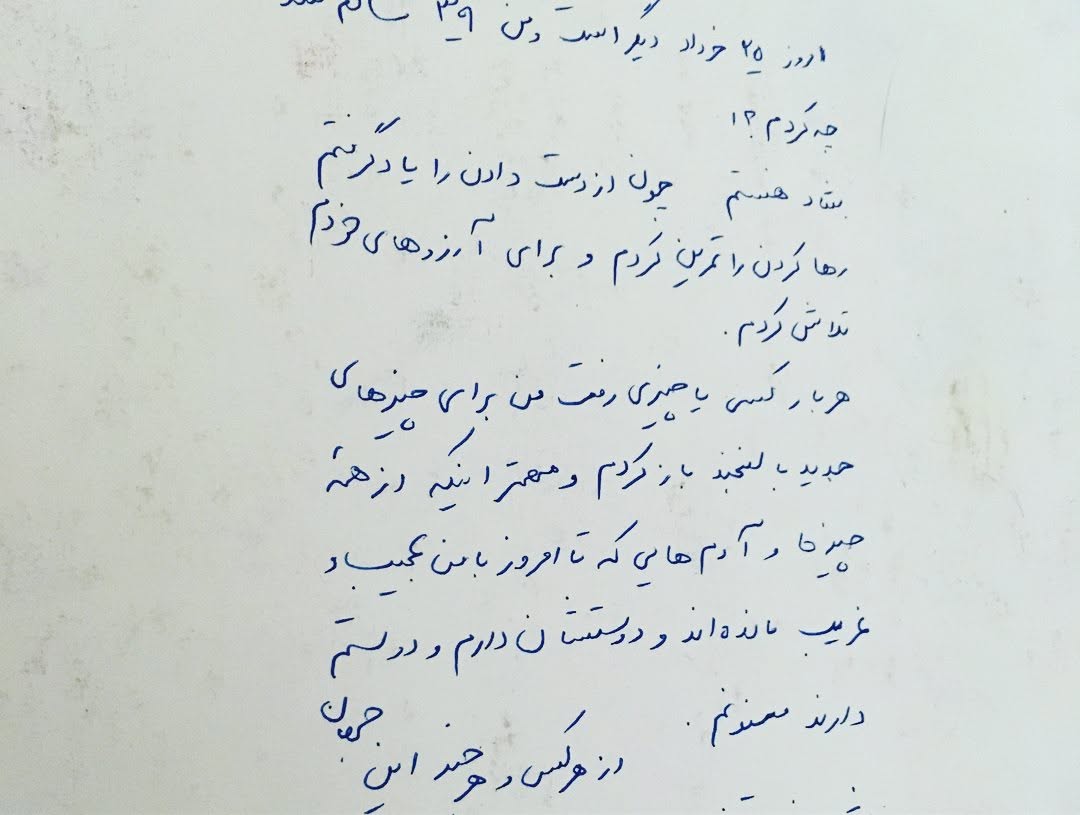 امروز ۲۵ خرداد دیگر است و من ۳۹ سالم شد
چه کردم ؟!
شاد هستم چون از دست دادن را یاد گرفتم
رها کردن را تمرین کردم و برای آرزوهای خودم
تلاش کردم .
هر بار کسی یا چیزی رفت من برای چیزهای
جدید با لبخند باز کردم و مهمتر اینکه از همه
چیزها و آدم هایی که تا امروز با من عجیب و
غریب مانده‌اند و دوستشان دارم و دوستم
دارند ممنونم .
از هر کس و هر چند این جهان